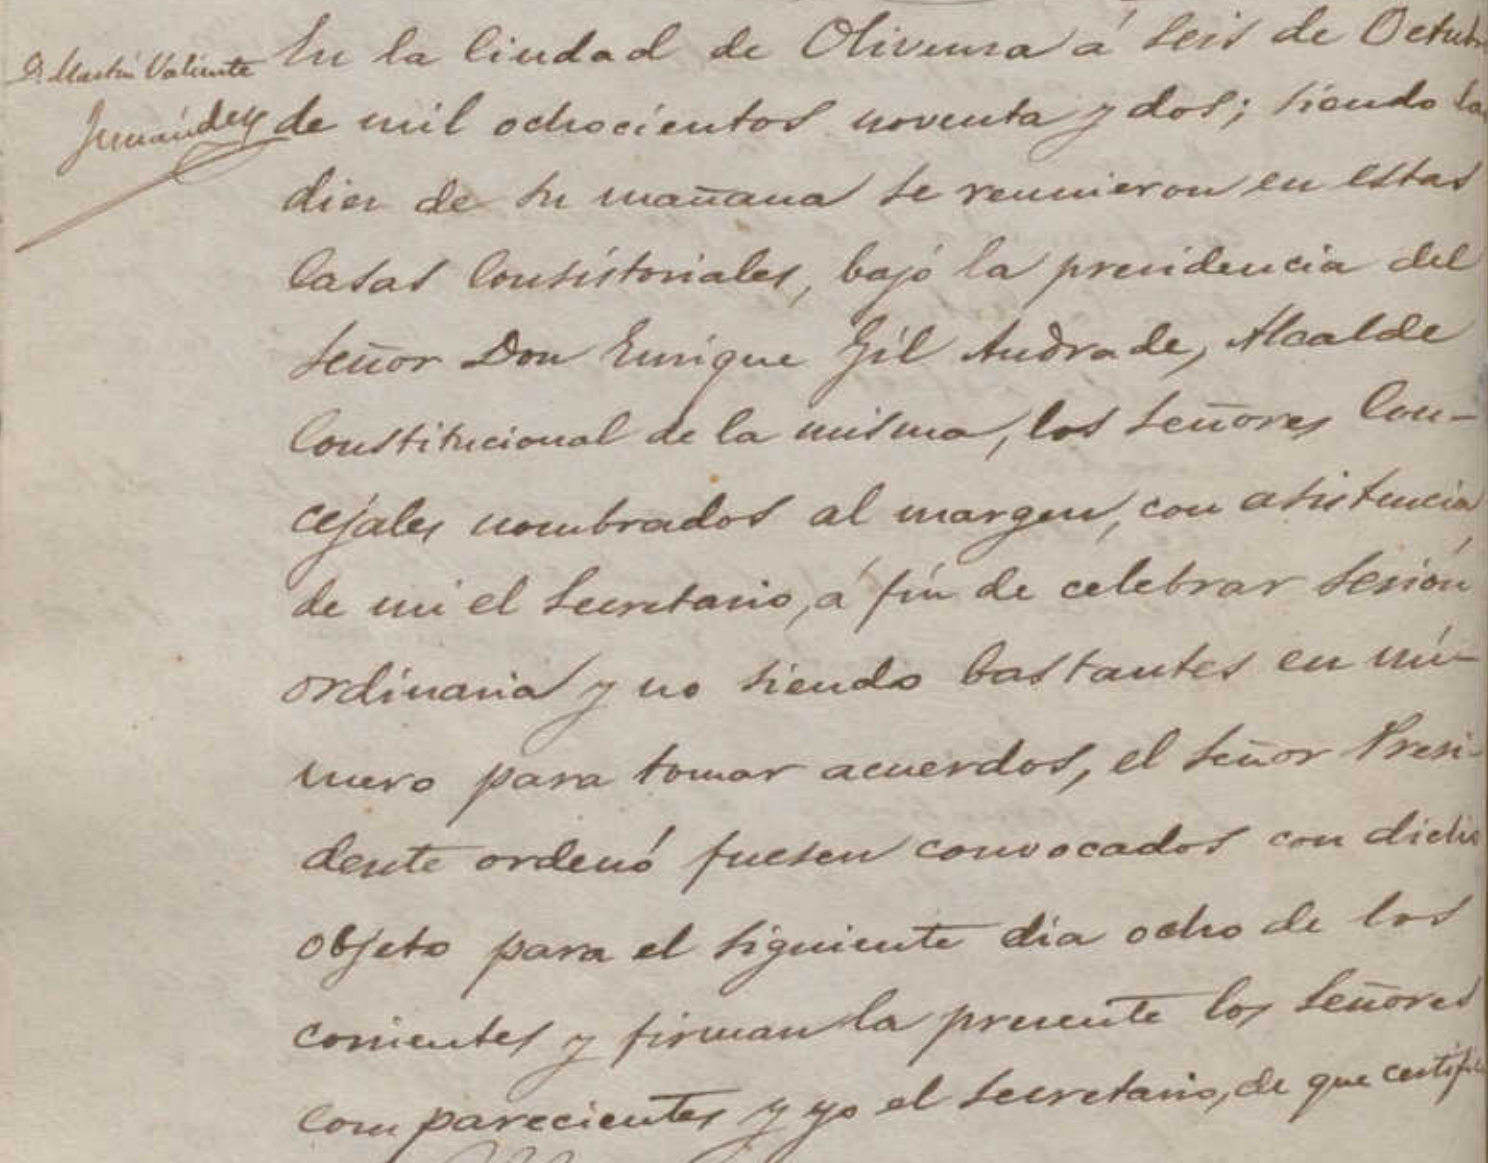 D. Martin Valiente
Fernández
En la Ciudad de Olivenza á seis de Octubre
de mil ochocientos noventa y dos; siendo las
diez de su mañana se reunieron en estas
Casas Consistoriales, bajó la presidencia del
Señor Don Enrique Gil Andrade, Alcalde
Constitucional de la misma, los Señores Con-
cejales nombrados al margen, con asistencia
de mi el Secretario, á fin de celebrar sesión
ordinaria y no siendo bastantes en nú-
mero para tomar acuerdos, el Señor Presi-
dente ordenó fuesen convocados con dicho
objeto para el siguiente dia ocho de los
corrientes y firman la presente los Señores
comparecientes y yo el Secretario, de que certifico